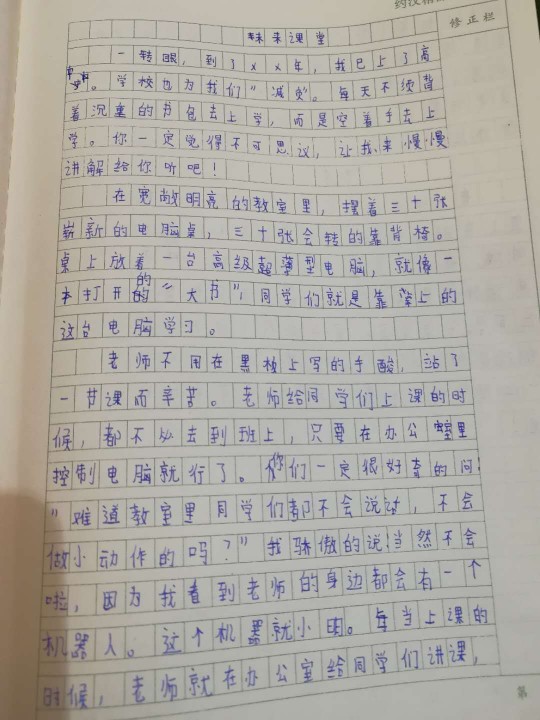 未来课堂
修正栏
一转眼，到了xx年，我已上了高
中。学校也为我们“减负”。每天不须背
着沉重的书包去上学，而是空着手去上
学。你一定觉得不可思议，让我来慢慢
讲解给你听吧！
在宽敞明亮的教室里，摆着三十张
崭新的电脑桌，三十张会转的靠背椅。
桌上放着一台高级超薄型电脑，就像一
本打开的“大书”，同学们就是靠桌上的
这台电脑学习。
老师不用在黑板上写的手酸，站了
一节课而辛苦。老师给同学们上课的时
候，都不必去到班上，只要在办公室里
控制电脑就行了。你们一定很好奇的问：
“难道教室里同学们都不会说话，不会
做小动作的吗？”我骄傲的说！当然不会
啦，因为我看到老师的身边都会有一个
机器人。这个机器就小明。每当上课的
时候，老师就在办公室给同学们讲课，
第